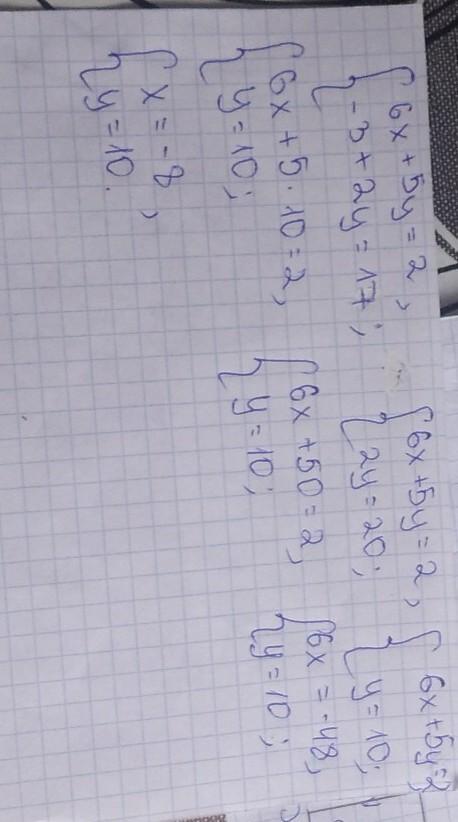 {6x + 5y = 2,
{-3 + 2y = 17;
{6x + 5y = 2,
{2y = 20;
{6x + 5y = 2,
{y = 10;
{6x + 5 · 10 = 2,
{y = 10;
{6x + 50 = 2,
{y = 10;
{6x = -48,
{y = 10;
{x = -8,
{y = 10.